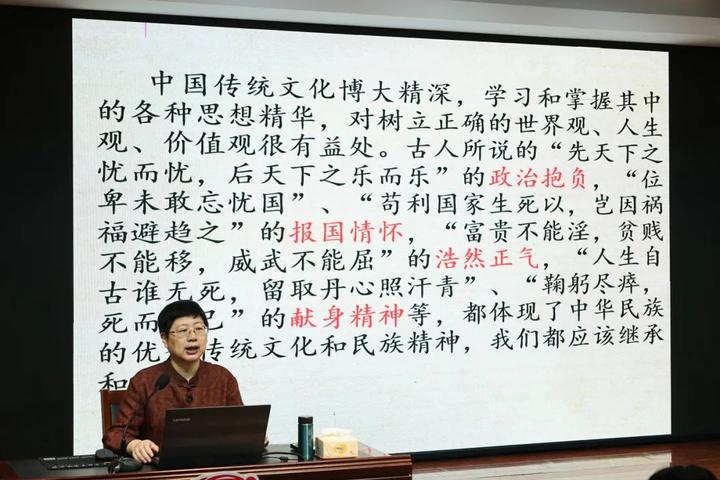 中国传统文化博大精深，学习和掌握其中
的各种思想精华，对树立正确的世界观、人生
观、价值观很有益处。古人所说的“先天下之
忧而忧，后天下之乐而乐”的政治抱负，“位
卑未敢忘忧国”、“苟利国家生死以，岂因祸
福避趋之”的报国情怀，“富贵不能淫，贫贱
不能移，威武不能屈”的浩然正气，“人生自
古谁无死，留取丹心照汗青”、“鞠躬尽瘁，
死而 已”的献身精神等，都体现了中华民族
的优 传统文化和民族精神，我们都应该继承
和
lenovo